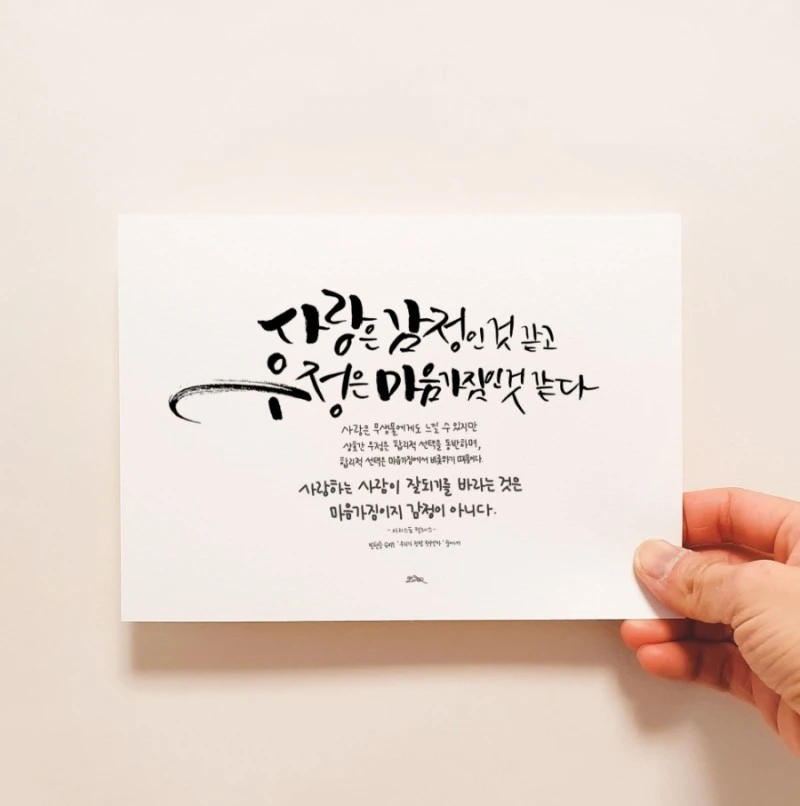 사랑은 감정인 것 같고
우정은 마음가짐인 것 같다
사랑은 무생물에게도 느낄 수 있지만
상호간 우정은 합리적 선택을 동반하며,
합리적 선택은 마음가짐에서 비롯하기 때문이다.
사랑하는 사람이 잘되기를 바라는 것은
마음가짐이지 감정이 아니다.
- 아리스토텔레스 -